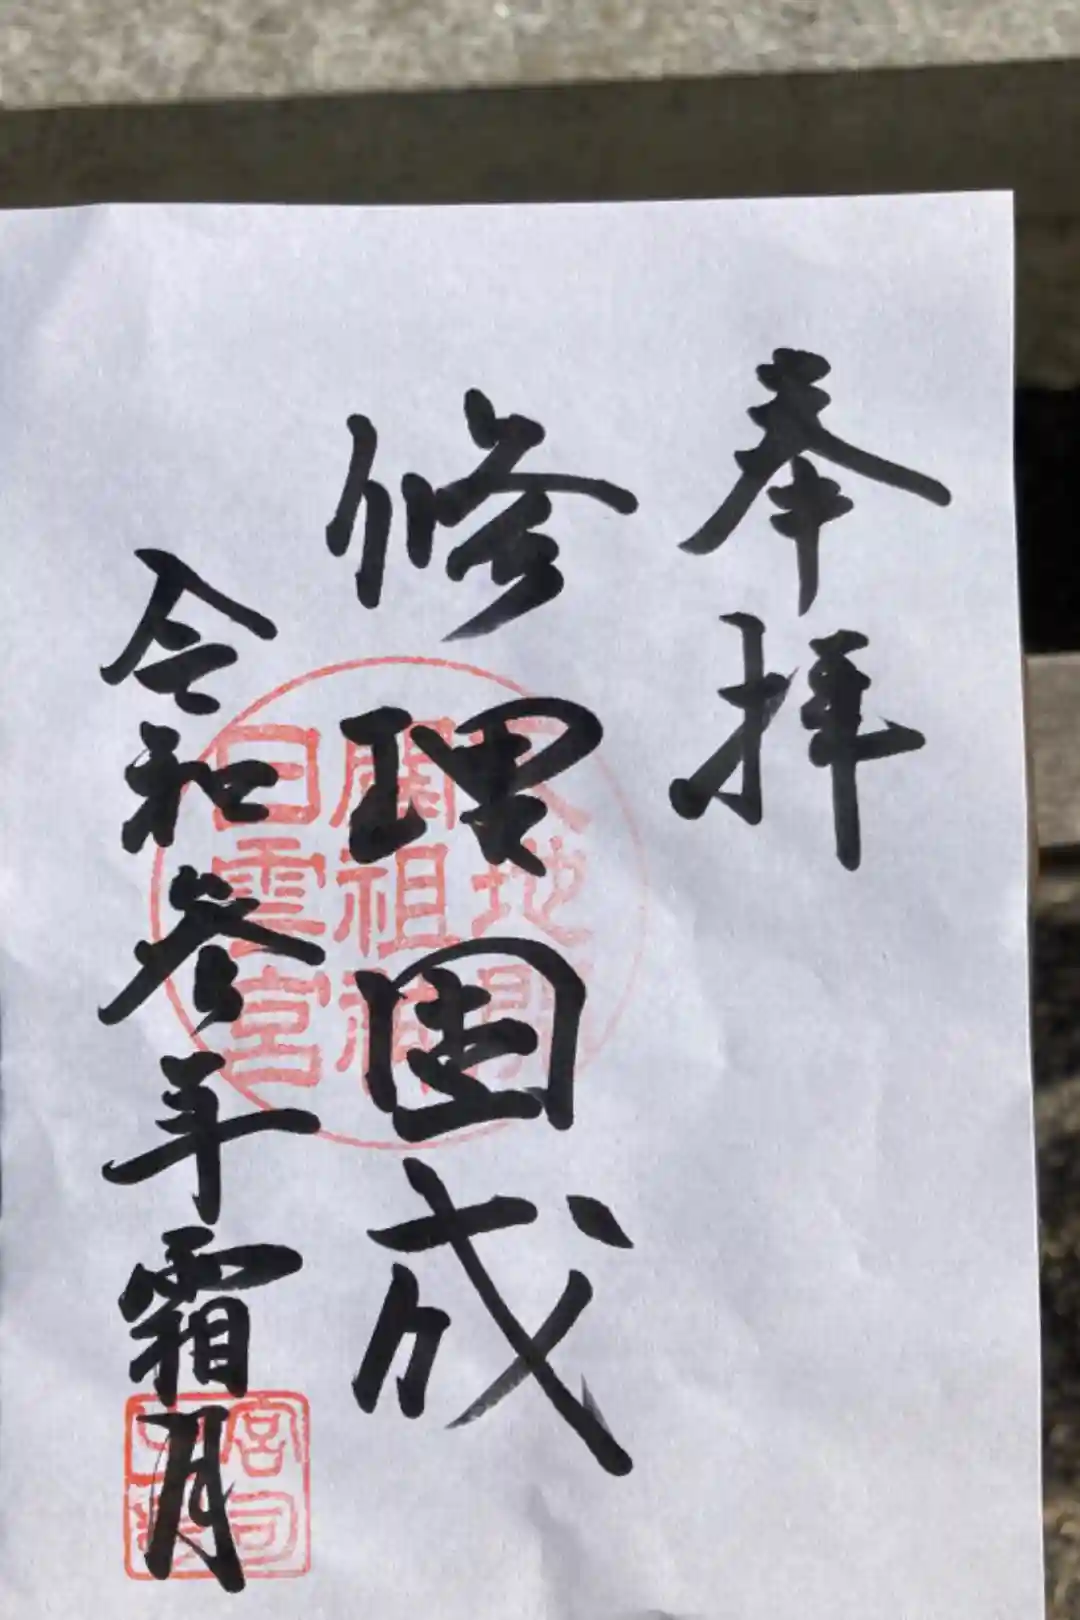 奉拝
修理固成
令和参年霜月
地開
開祖神
日雲宮
宮司